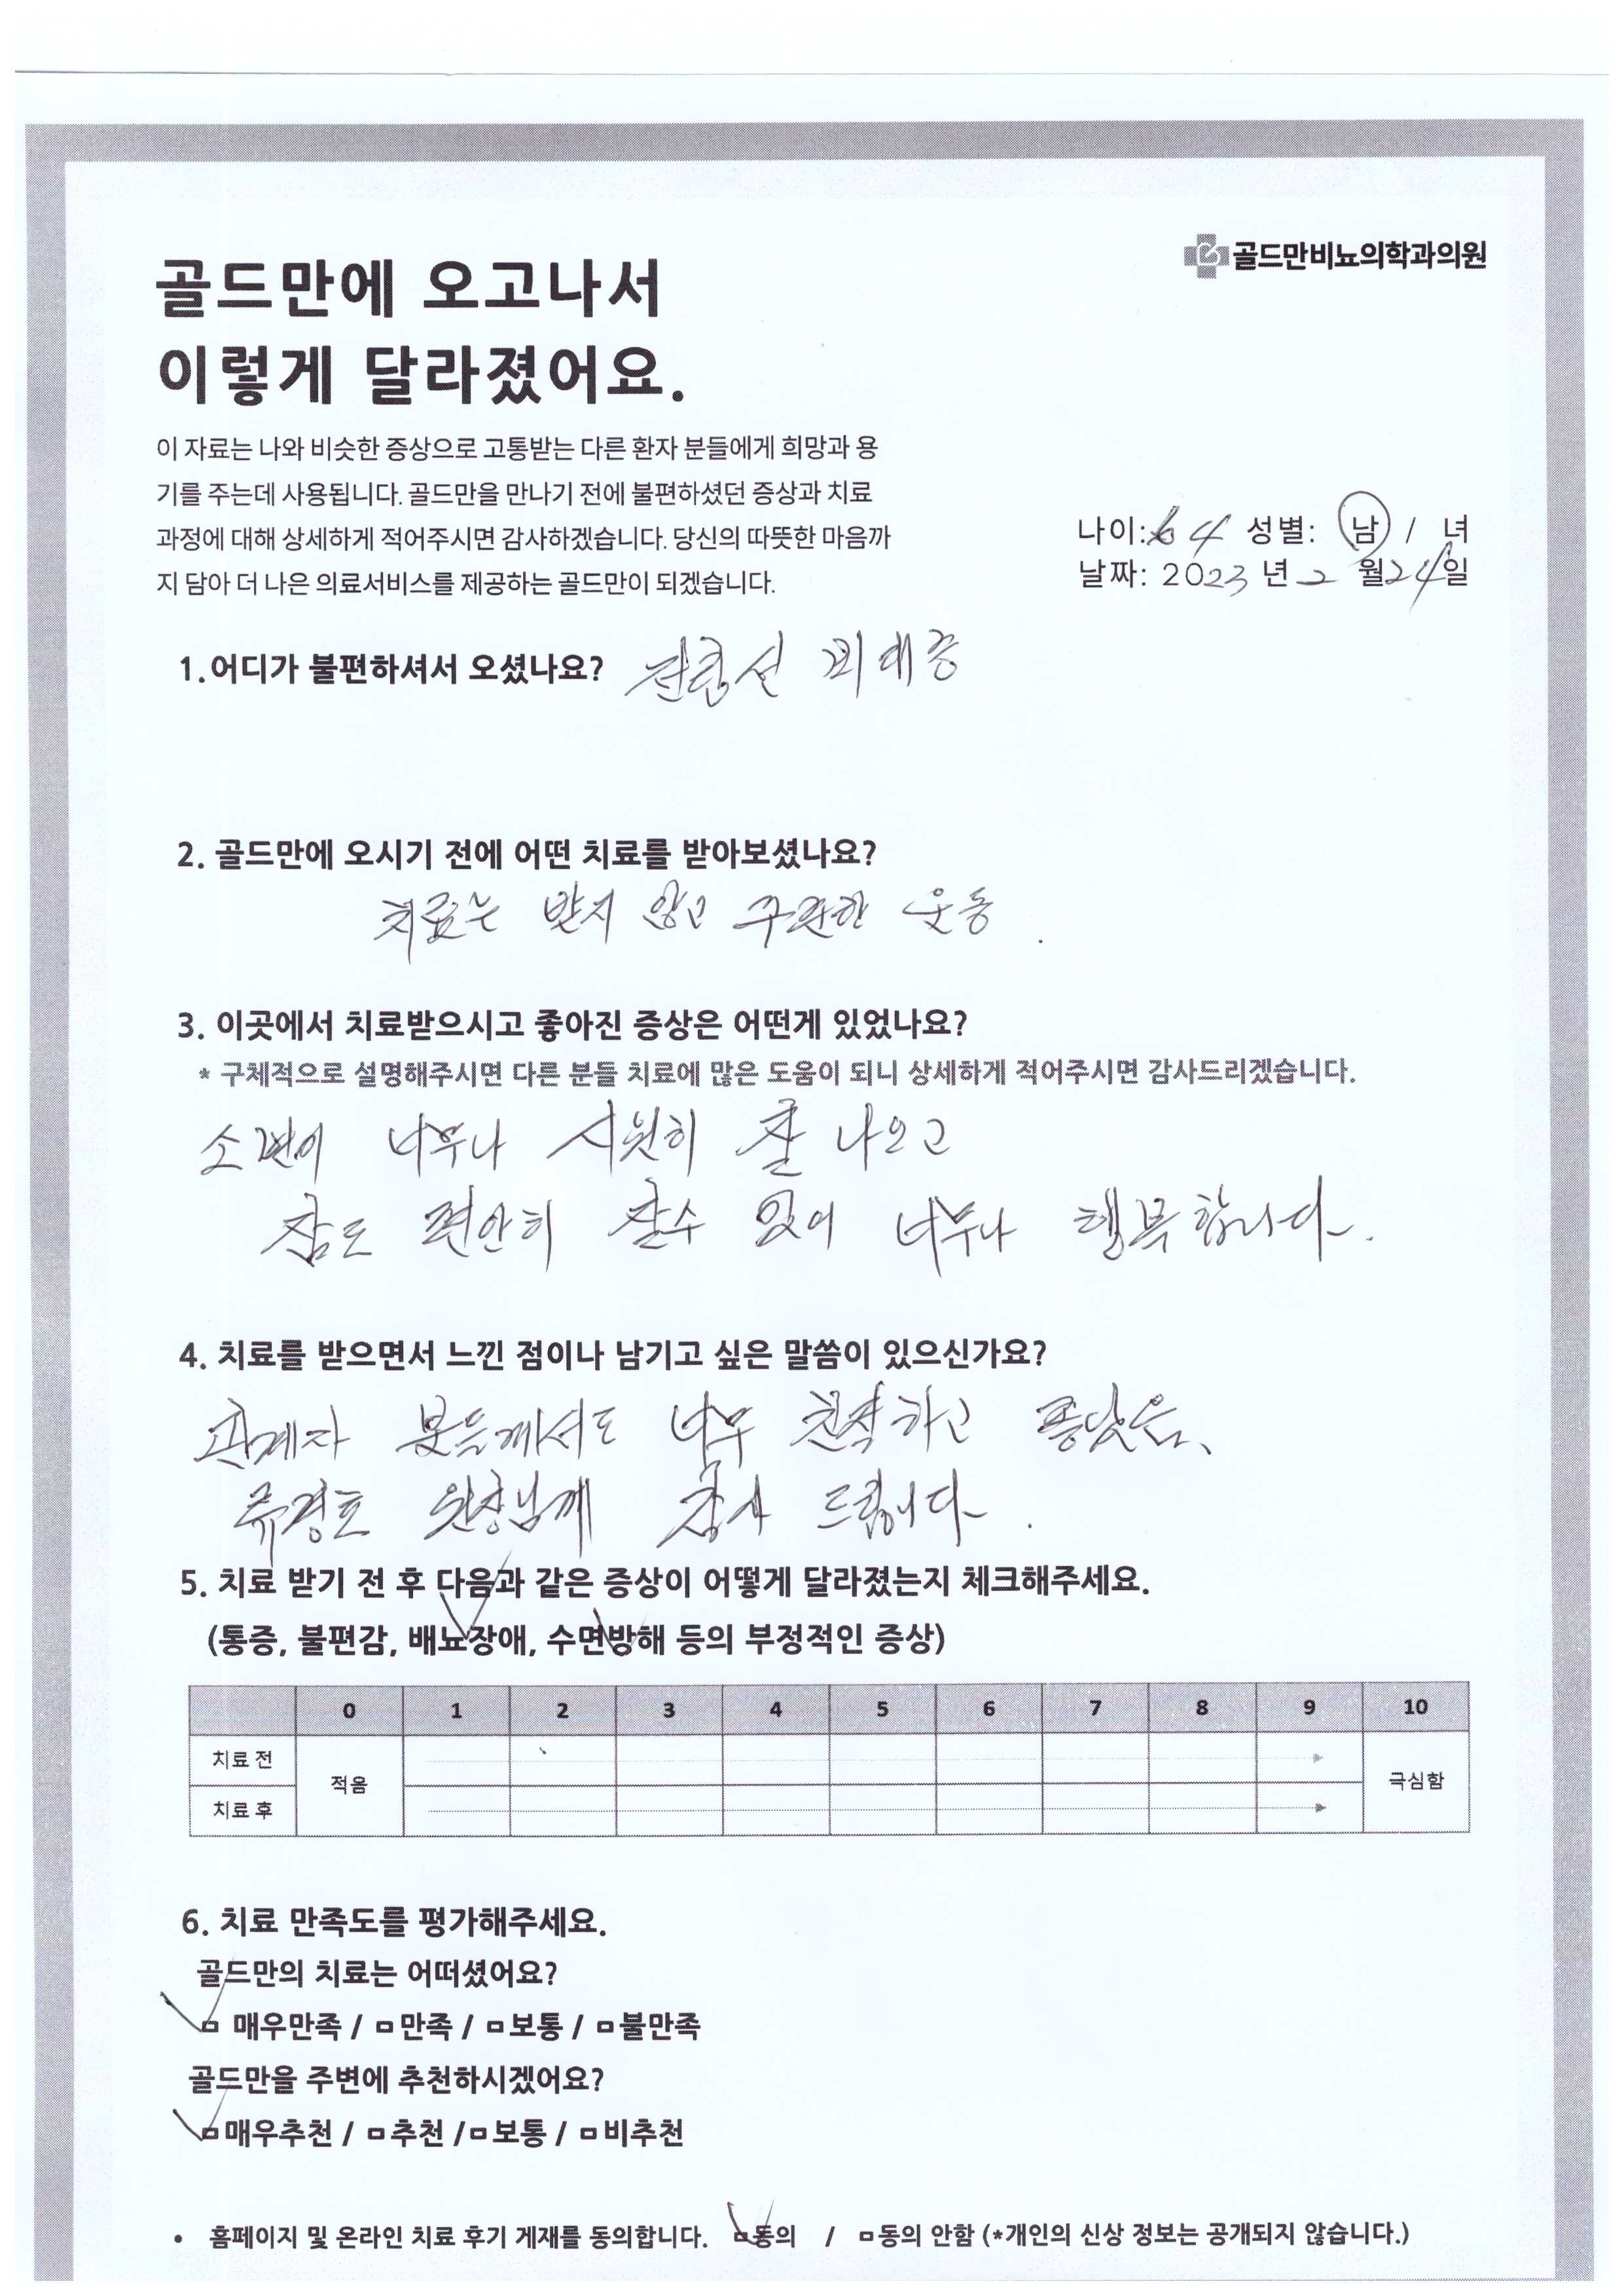 골드만비뇨의학과의원
골드만에 오고나서
이렇게 달라졌어요.
이 자료는 나와 비슷한 증상으로 고통받는 다른 환자 분들에게 희망과 용
기를 주는데 사용됩니다. 골드만을 만나기 전에 불편하셨던 증상과 치료
과정에 대해 상세하게 적어주시면 감사하겠습니다. 당신의 따뜻한 마음까
지 담아 더 나은 의료서비스를 제공하는 골드만이 되겠습니다.
나이: 64 성별: 남 / 녀
날짜: 2023 년 2 월 24 일
1.어디가 불편하셔서 오셨나요? 전립선 비대증
2. 골드만에 오시기 전에 어떤 치료를 받아보셨나요?
치료는 받지 않고 꾸준한 운동.
3. 이곳에서 치료받으시고 좋아진 증상은 어떤게 있었나요?
* 구체적으로 설명해주시면 다른 분들 치료에 많은 도움이 되니 상세하게 적어주시면 감사드리겠습니다.
소변이 너무나 시원히 잘 나오고
잠도 편안히 잘수 있어 너무나 행복합니다.
4. 치료를 받으면서 느낀 점이나 남기고 싶은 말씀이 있으신가요?
관계자 분들께서도 너무 친절하고 좋았음.
류경호 원장님께 감사 드립니다.
5. 치료 받기 전 후 다음과 같은 증상이 어떻게 달라졌는지 체크해주세요.
(통증, 불편감, 배뇨장애, 수면방해 등의 부정적인 증상)
0 1 2 3 4 5 6 7 8 9 10
치료 전
적음
극심함
치료 후
6. 치료 만족도를 평가해주세요.
골드만의 치료는 어떠셨어요?
매우만족 / 만족 / 보통 / 불만족
골드만을 주변에 추천하시겠어요?
매우추천 / 추천 / 보통 / 비추천
• 홈페이지 및 온라인 치료 후기 게재를 동의합니다. 동의 / 동의 안함 (*개인의 신상 정보는 공개되지 않습니다.)